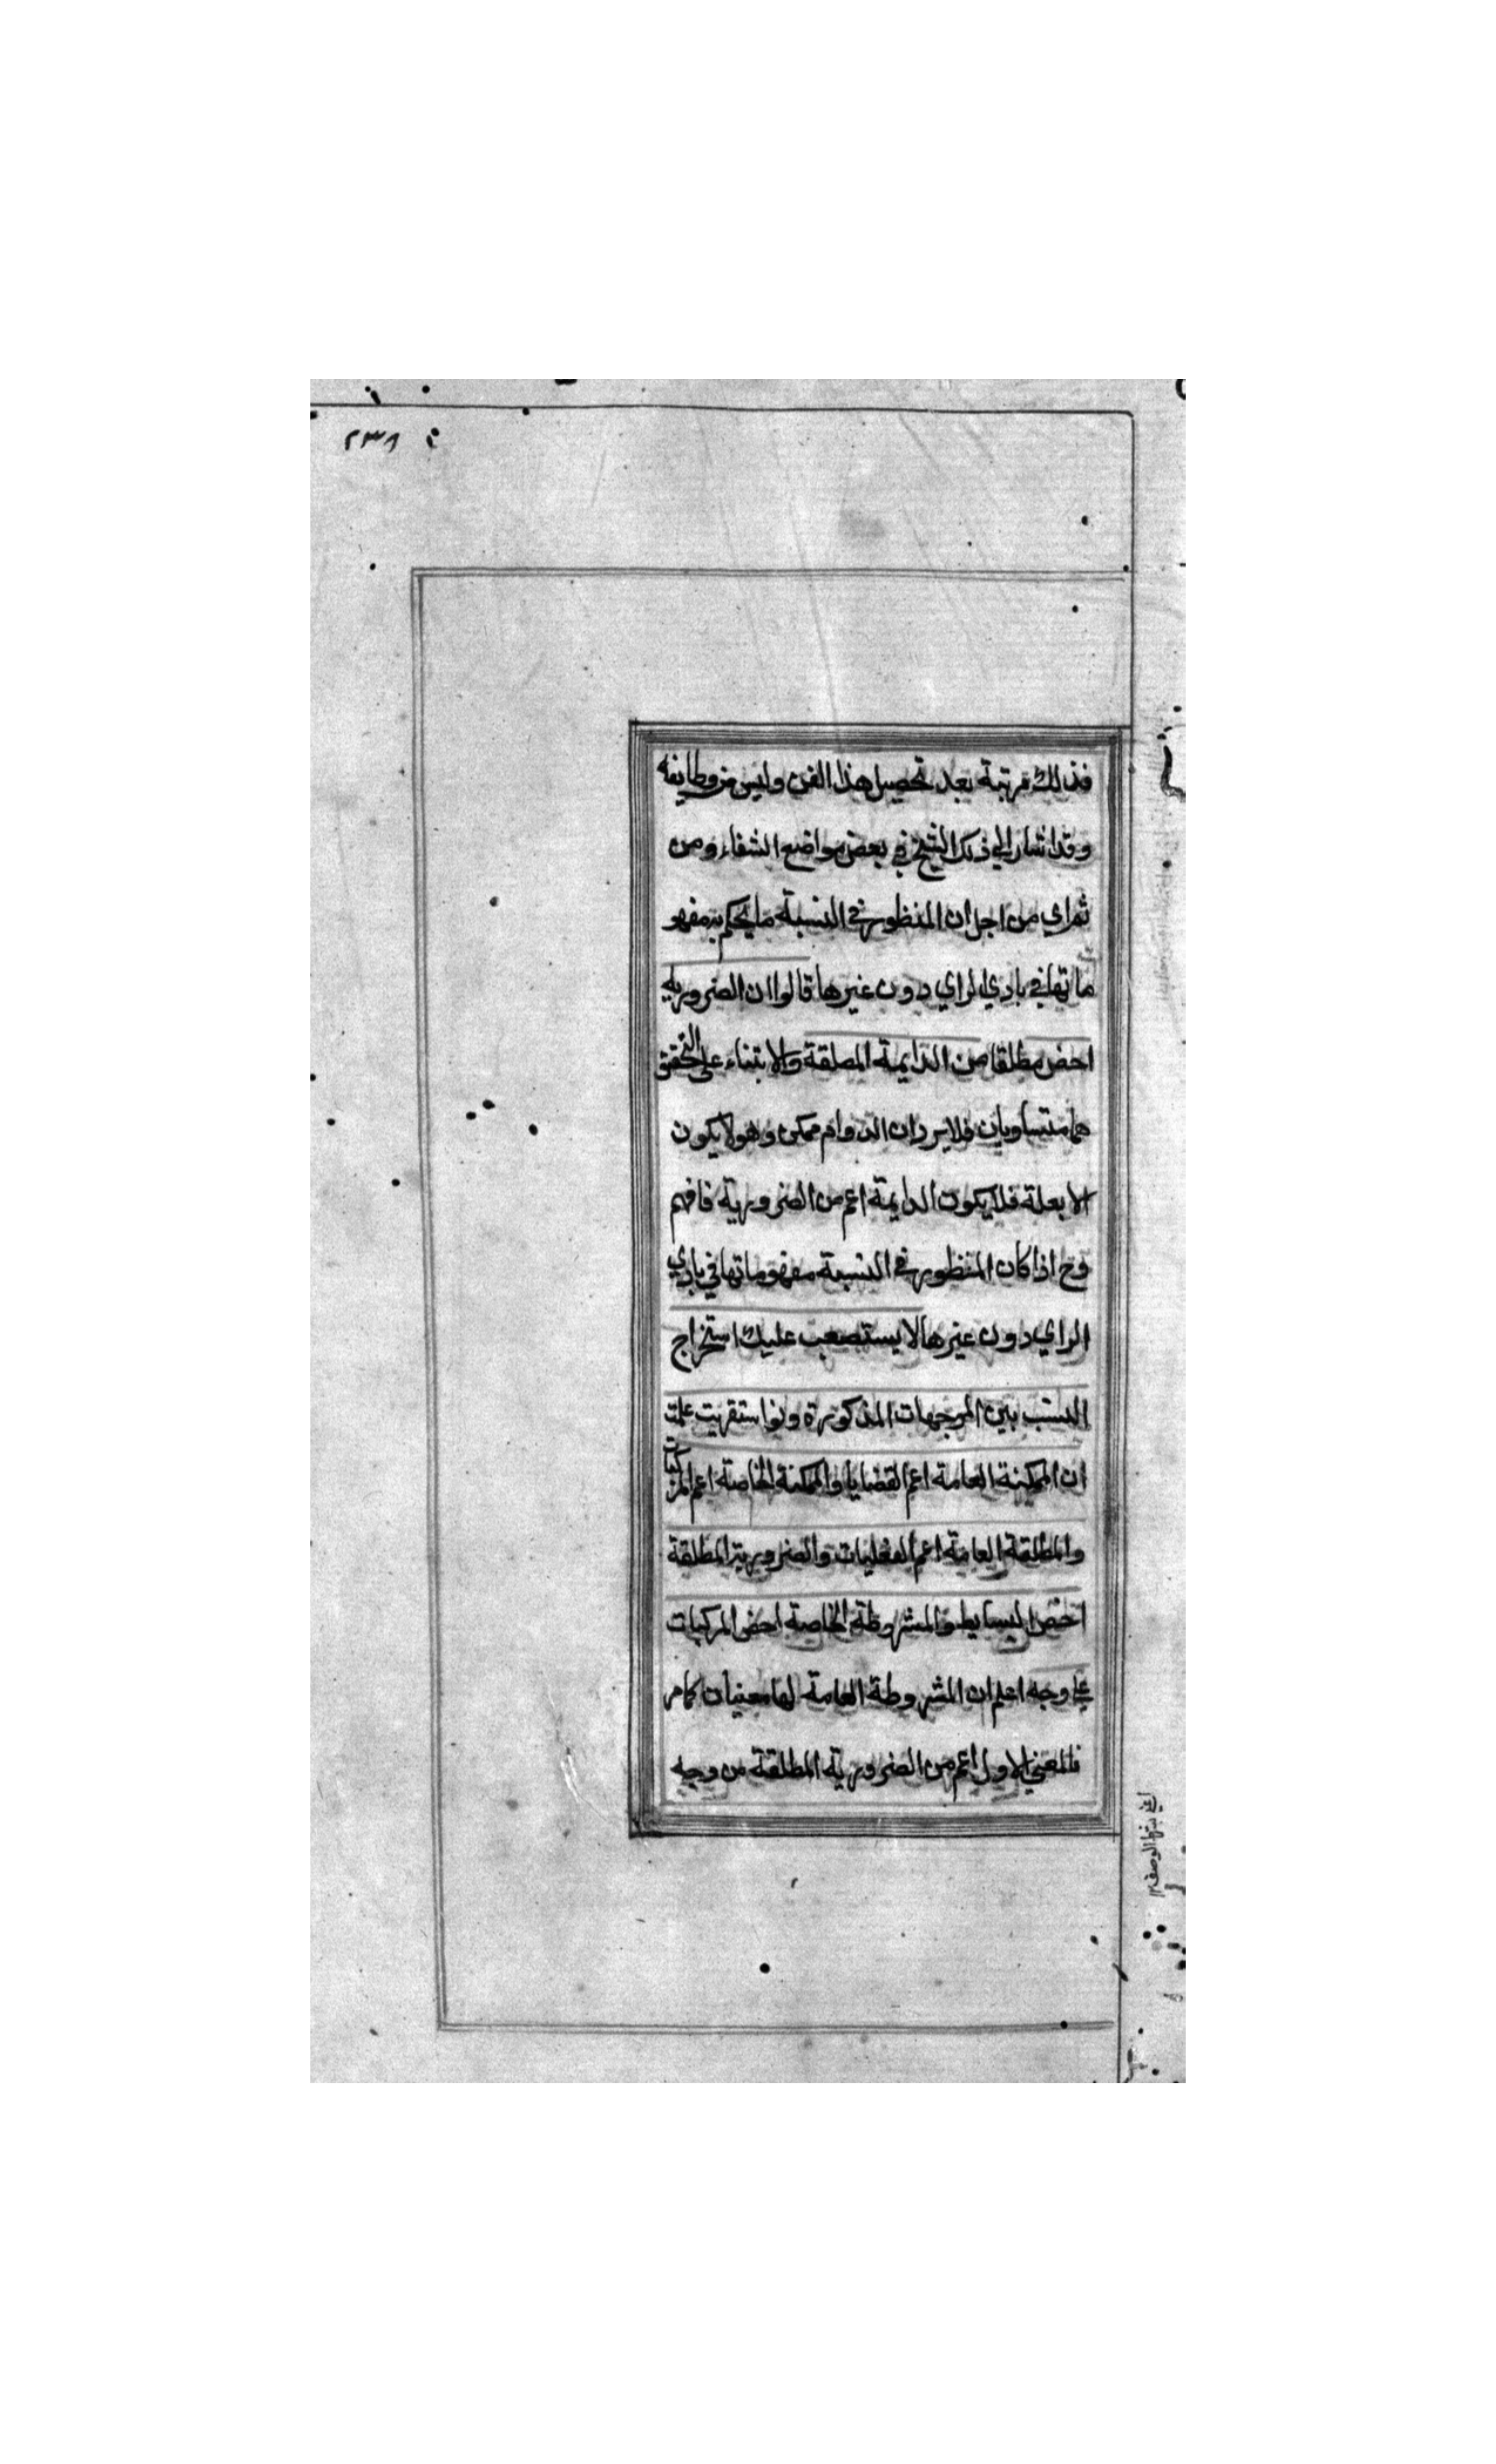 ٢٣٨
فذلك مرتبة بعد تحصيل هذا الفن وليس من وظايفه
وقد اشار الي ذلك الشيخ في بعض مواضع الشفاء ومن
ثم اي من اجل ان المنظور في النسبة ما يحكم به مفهو
ماتها في بادي الراي دون غيرها قالوا ان الضرورية
اخص مطلقا من الدايمة المطلقة والا بتناء على التحقيق
هما متساويان فلا يرد ان الدوام ممكن وهو لا يكون
الا بعلة فلا يكون الدايمة اعم من الضرورية فافهم
وح اذا كان المنظور في النسبة مفهوماتها في بادي
الراي دون غيرها لا يستصعب عليك استخراج
النسب بين الموجهات المذكورة ولو استقريت علمت
ان الممكنة العامة اعم القضايا والممكنة الخاصة اعم المركبات
والمطلقة العامة اعم الفعليات والضرورية المطلقة
اخص البسايط والمشروطة الخاصة اخص المركبات
علي وجه اعلم ان المشروطة العامة لها معنيان كما مر
فالمعني الاول اعم من الضرورية المطلقة من وجه